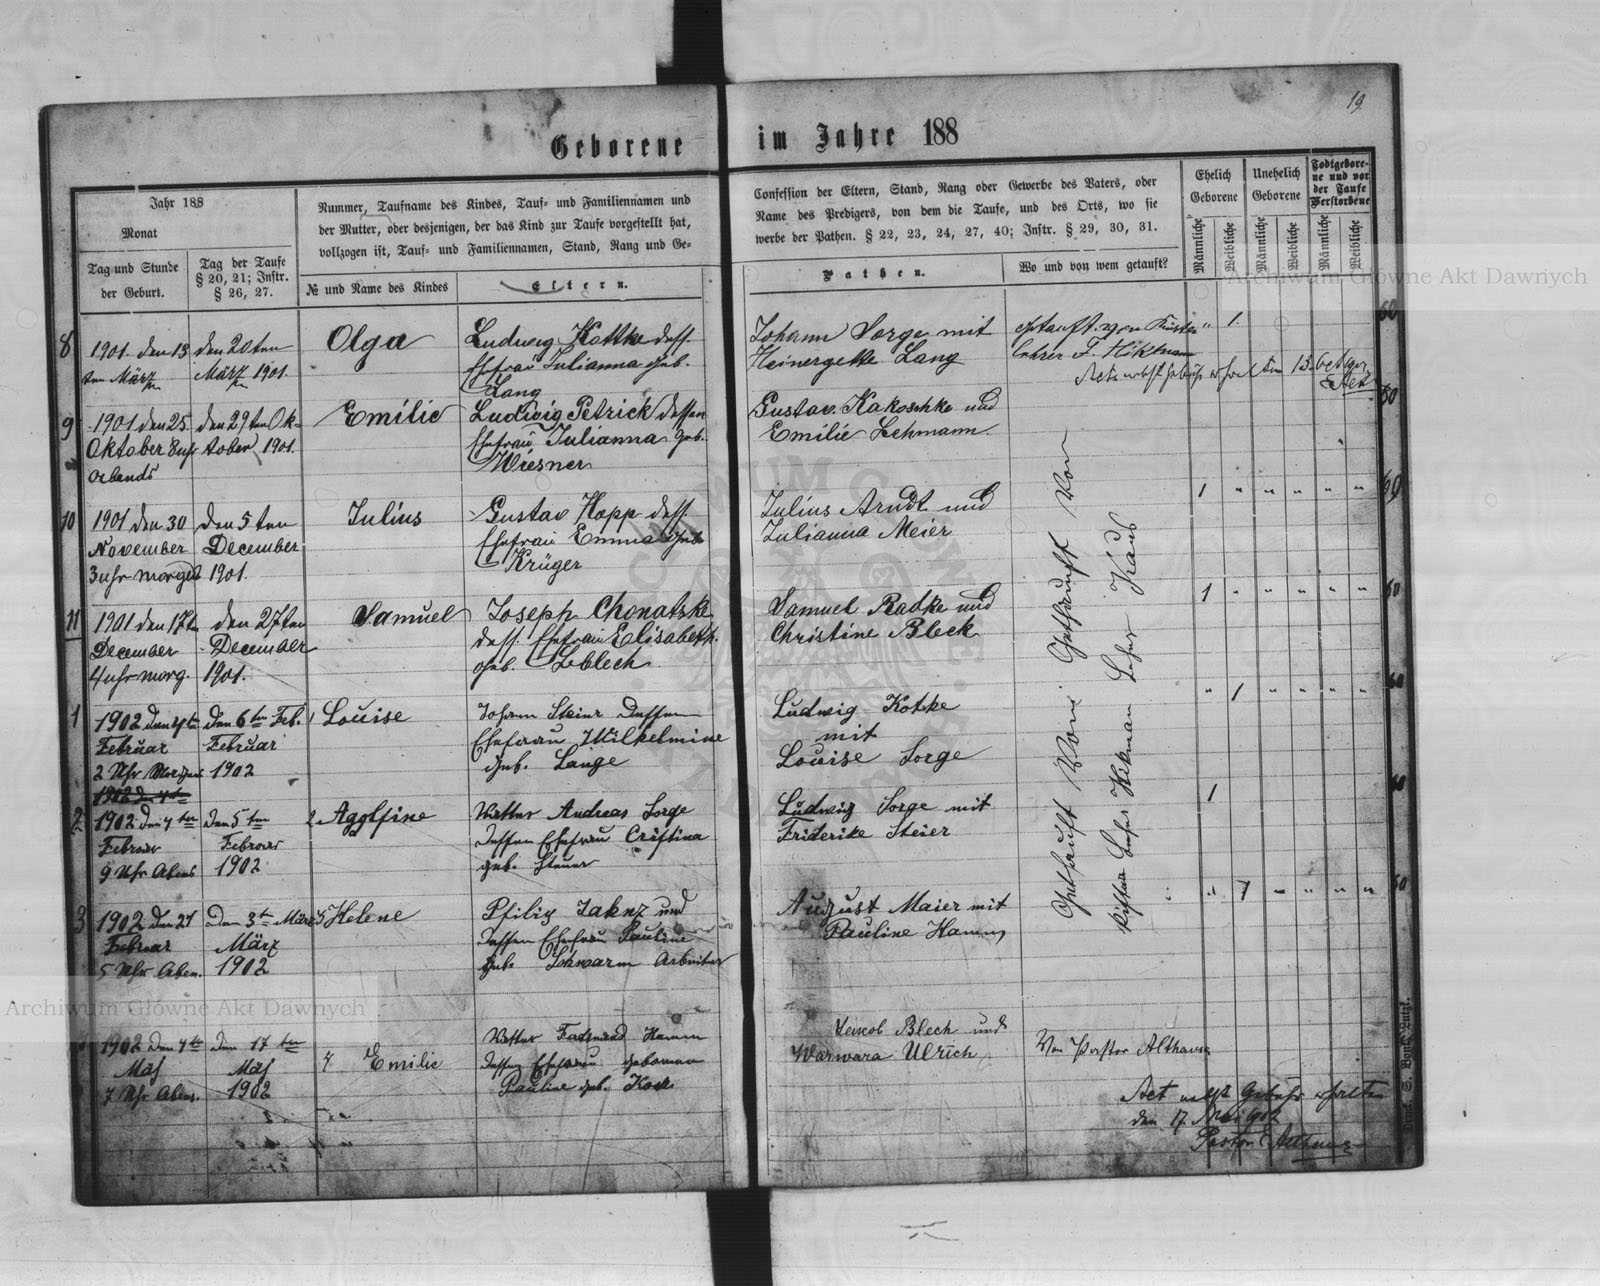 19.
Geborene im Jahre 188
Jahr 188
Monat
Tag und Stunde
der Geburt.
Tag der Taufe
§ 20, 21; Instr.
§ 26, 27.
Nummer, Taufname des Kindes, Tauf- und Familiennamen und
der Mutter, oder desjenigen, der das Kind zur Taufe vorgestellt hat,
vollzogen ist, Tauf- und Familiennamen, Stand, Rang und Ge-
№ und Name des Kindes
Eltern.
Confession der Eltern, Stand, Rang oder Gewerbe des Vaters, oder
Name des Predigers, von dem die Taufe, und des Orts, wo sie
werbe der Pathen. § 22, 23, 24, 27, 40; Instr. § 29, 30, 31.
Pathen.
Wo und von wem getauft?
Ehelich
Geborene
Unehelich
Geborene
Todtgebore-
ne und vor
der Taufe
Verstorbene
Männliche
Weibliche
Männliche
Weibliche
Männliche
Weibliche
8
1901. den 13
ten März
den 20ten
März 1901.
Olga
Ludwig Kottke dess.
Ehefrau Julianna geb.
Lang
Johann Sorge mit
Lang
getauft von Küster
lehrer F. Hikman
1.
60
9
1901 den 25.
Oktober 8 uhr
abends
den 29ten Ok-
tober 1901.
Emilie
Ludwig Petrick dessen
Ehefrau Julianna geb.
Wiesner
Gustav Kakoschke und
Emilie Lehmann.
60
10
1901 den 30
November
3 uhr morgens
den 5 ten
December
1901.
Julius
Gustav Hopp dess.
Ehefrau Emma geb
Krüger
Julius Arndt und
Julianna Meier
1 " " " " "
60
11
1901 den 17t
December
4 uhr morg.
den 27ten
December
1901.
Samuel
Joseph Chonatzke
dess. Ehefrau Elisabeth.
geb. Leblech
Samuel Radke und
Christine Bleck
1 " " " " "
60
1
1902 den 4te
Februar
2 Uhr Morgens
den 6 ten Feb.
Februar
1902
1 Louise
Johann Steier Dessen
Ehefrau Wilhelmine
geb. Lange
Ludwig Kottke
mit
Louise Sorge
" 1 " " " "
60
2
1902 den 4 ten
Februar
9 Uhr Abens
den 5 ten
Februar
1902
2 Agolfine
Vatter Andreas Sorge
Dessen Ehefrau Cristina
geb. Steuer
Ludwig Sorge mit
Friderike Steier
1
60
3
1902 den 27
Februar
5 Uhr Aben.
Den 3 ten März
März
1902
3 Helene
Pfilip Jaknz und
Dessen Ehefrau Pauline
geb. Schwarm Arbeiter
August Maier mit
Pauline Hamm
" 1 " " " "
60
Gethauft Von
Lehrer Hikman
1902 den 4te
Maj
7 Uhr Abens.
Den 17 ten
Maj
1902
4 Emilie
Vatter Ferdinand Hamm
Dessen Ehefrau gebornen
Pauline geb. Kock
Jacob Blech und
Warwara Ulrich
Von Pastor Althaus
Act nebst Gebühr erhalten
den 17. Mai 902
Pastor E. Althaus
Archiwum Główne Akt Dawnych
Archiwum Główne Akt Dawnych